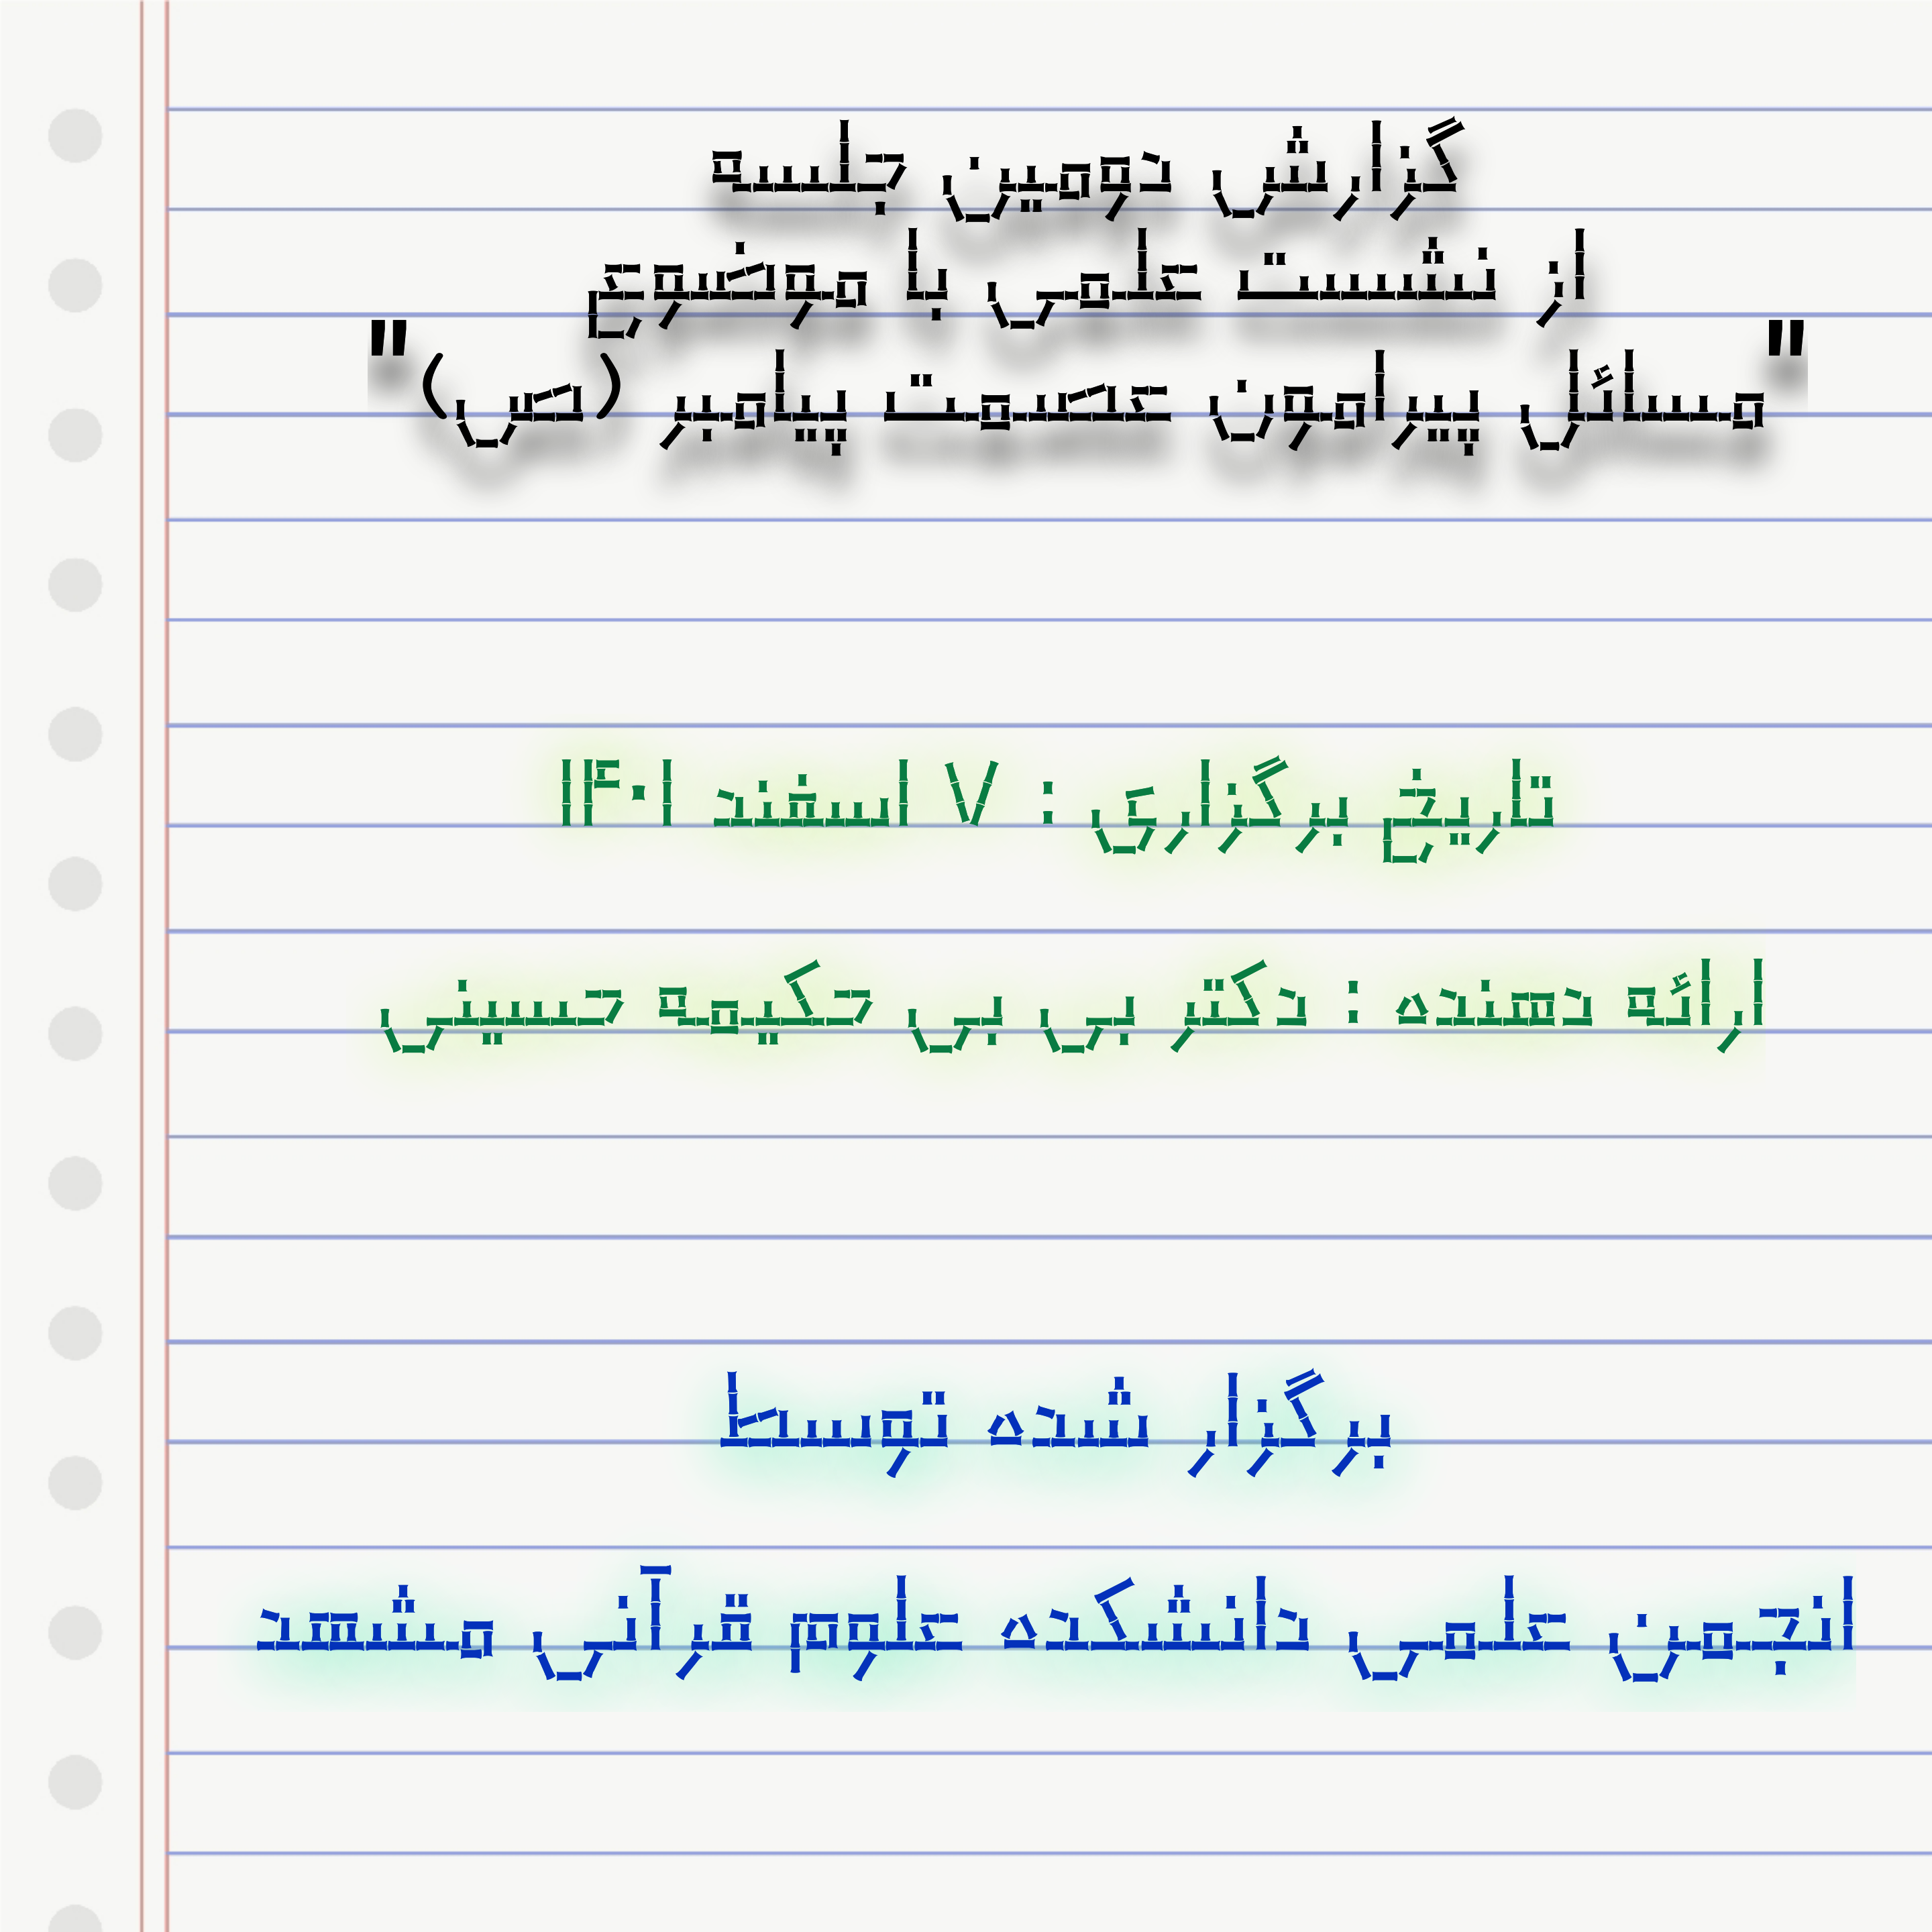 گزارش دومین جلسه
از نشست علمی با موضوع
"مسائل پیرامون عصمت پیامبر (ص)"
تاریخ برگزاری : ۷ اسفند ۱۴۰۱
ارائه دهنده : دکتر بی بی حکیمه حسینی
برگزار شده توسط
انجمن علمی دانشکده علوم قرآنی مشهد